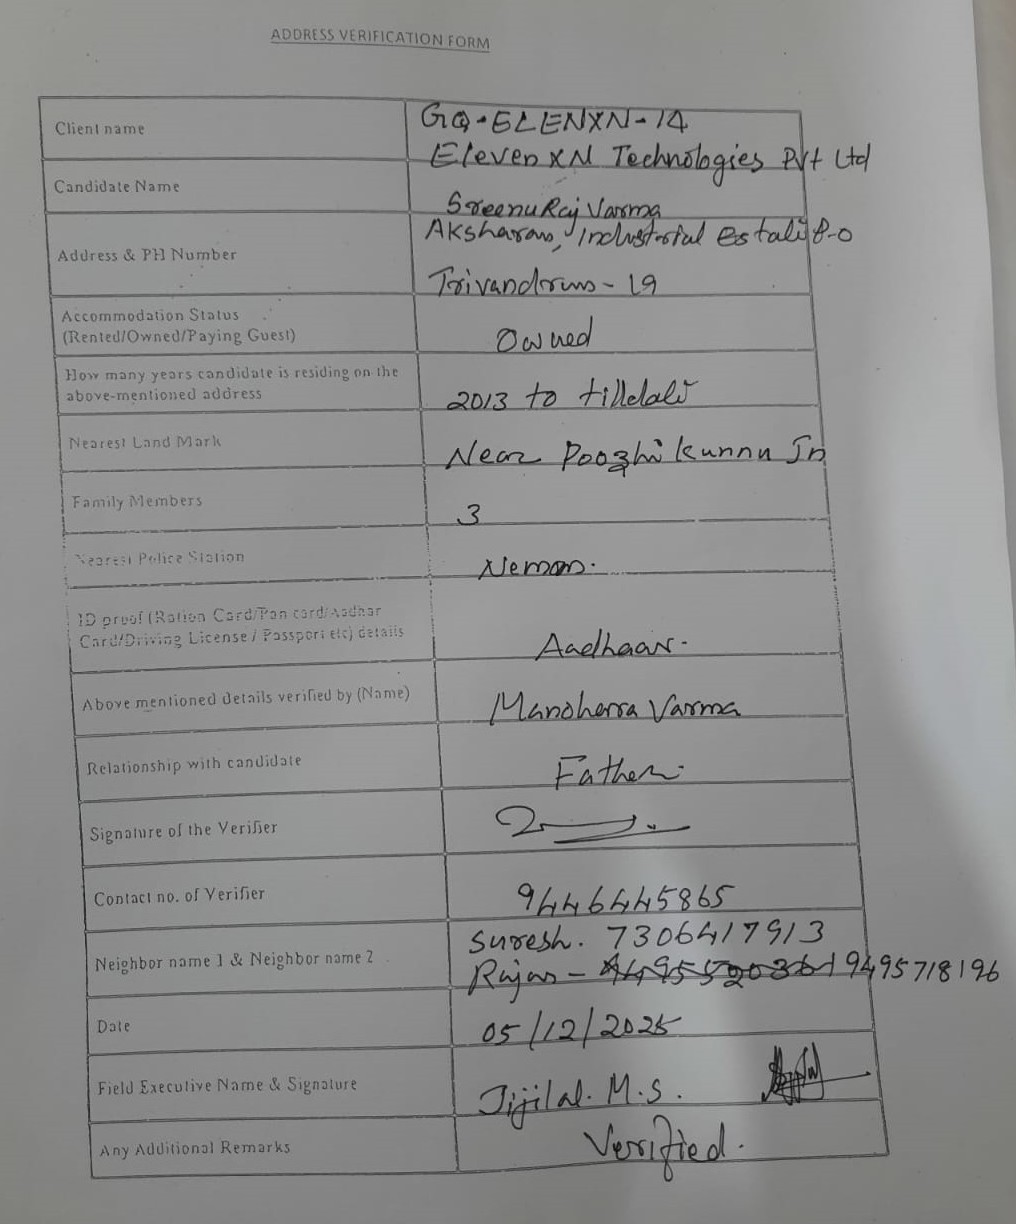 ADDRESS VERIFICATION FORM
Client name
GQ-ELENXN-14
Eleven XN Technologies Pvt Ltd
Candidate Name
Sreenu Raj Varma
Address & PH Number
Aksharam, Industrial Estate P-O
Trivandrum - 19
Accommodation Status
(Rented/Owned/Paying Guest)
Owned
How many years candidate is residing on the
above-mentioned address
2013 to tilldate
Nearest Land Mark
Near Poozhikunnu Jn
Family Members
3
Nearest Police Station
Nemom.
ID proof (Ration Card/Pan card/Aadhar
Card/Driving License / Passport etc) details
Aadhaar-
Above mentioned details verified by (Name)
Manoharra Varma
Relationship with candidate
Father.
Signature of the Verifier
Contact no. of Verifier
9446445865
Neighbor name 1 & Neighbor name 2
Suresh. 7306417913
Rajan - 9495718196
Date
05/12/2025
Field Executive Name & Signature
Jijilal. M.S.
Any Additional Remarks
Verified.